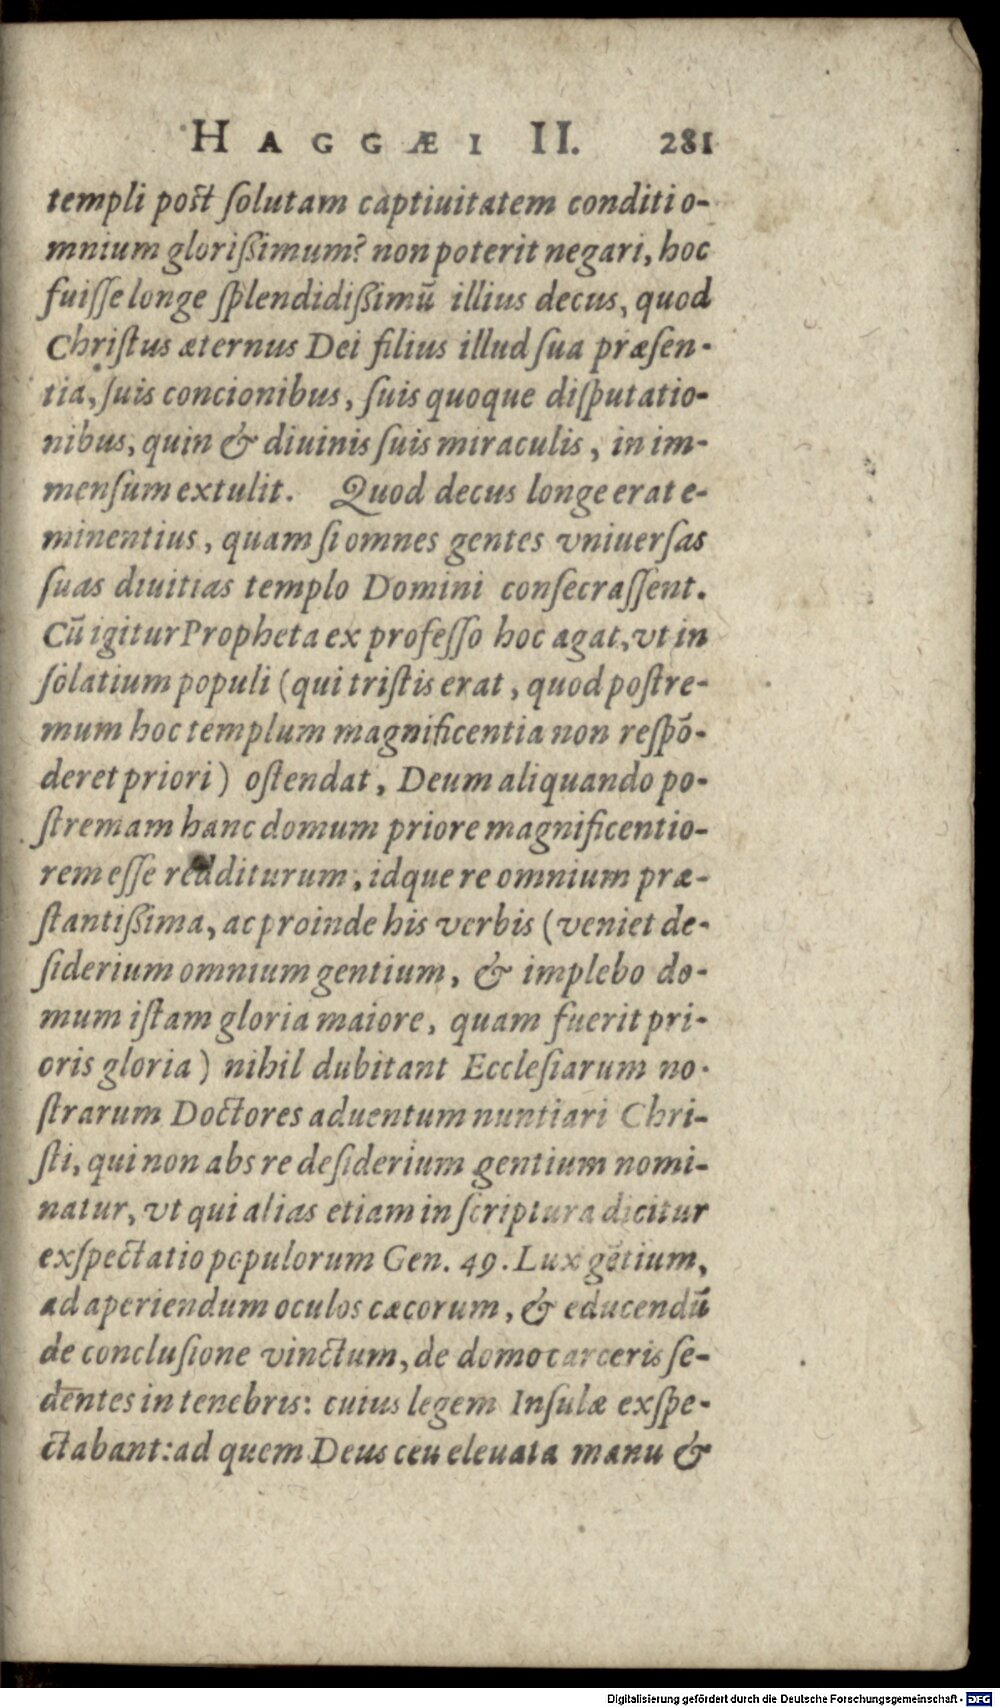 HAGGÆI II. 281
templi post ſolutam captiuitatem conditi o-
mnium gloriſsimum? non poterit negari, hoc
fuiſſe longe ſplendidiſsimū illius decus, quod
Chriſtus æternus Dei filius illud ſua præſen-
tia, ſuis concionibus, ſuis quoque diſputatio-
nibus, quin & diuinis ſuis miraculis, in im-
menſum extulit. Quod decus longe erat e-
minentius, quam ſi omnes gentes vniuerſas
ſuas diuitias templo Domini conſecraſſent.
Cū igitur Propheta ex profeſſo hoc agat, vt in
ſolatium populi (qui triſtis erat, quod poſtre-
mum hoc templum magnificentia non reſpō-
deret priori) oſtendat, Deum aliquando po-
ſtremam hanc domum priore magnificentio-
rem eſſe redditurum, idque re omnium præ-
ſtantiſsima, ac proinde his verbis (veniet de-
ſiderium omnium gentium, & implebo do-
mum iſtam gloria maiore, quam fuerit pri-
oris gloria) nihil dubitant Eccleſiarum no-
ſtrarum Doctores aduentum nuntiari Chri-
ſti, qui non abs re deſiderium gentium nomi-
natur, vt qui alias etiam in ſcriptura dicitur
exſpectatio populorum Gen. 49. Lux gētium,
ad aperiendum oculos cæcorum, & educendū
de concluſione vinctum, de domo carceris ſe-
dentes in tenebris: cuius legem Inſulæ exſpe-
ctabant: ad quem Deus ceu eleuata manu &
Digitalisierung gefördert durch die Deutsche Forschungsgemeinschaft - DFG